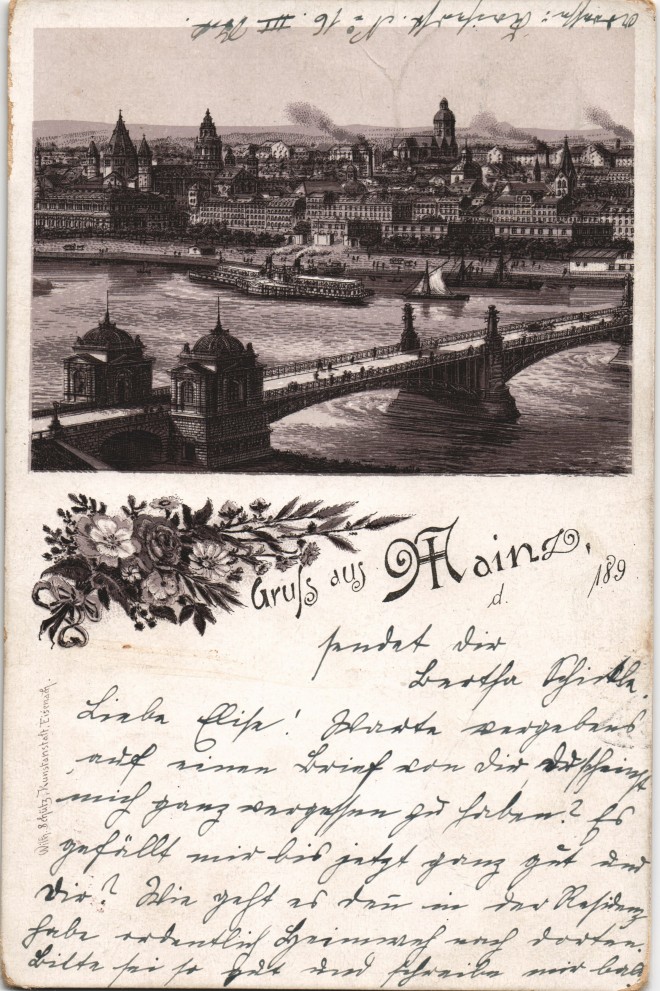 Adresse: Kaiserstr. No 16. III Stk.
Gruss aus Mainz,
d. 189
sendet dir
Bertha Schickle.
Liebe Elise! Warte vergebens
auf einen Brief von dir. Du scheinst
mich ganz vergessen zu haben? Es
gefällt mir bis jetzt ganz gut und
Dir? Wie geht es den̄ in der Residenz
habe ordentlich Heimweh nach dorten.
Bitte sei so gut und schreibe mir bald
Wilh. Schütz, Kunstanstalt, Eisenach.